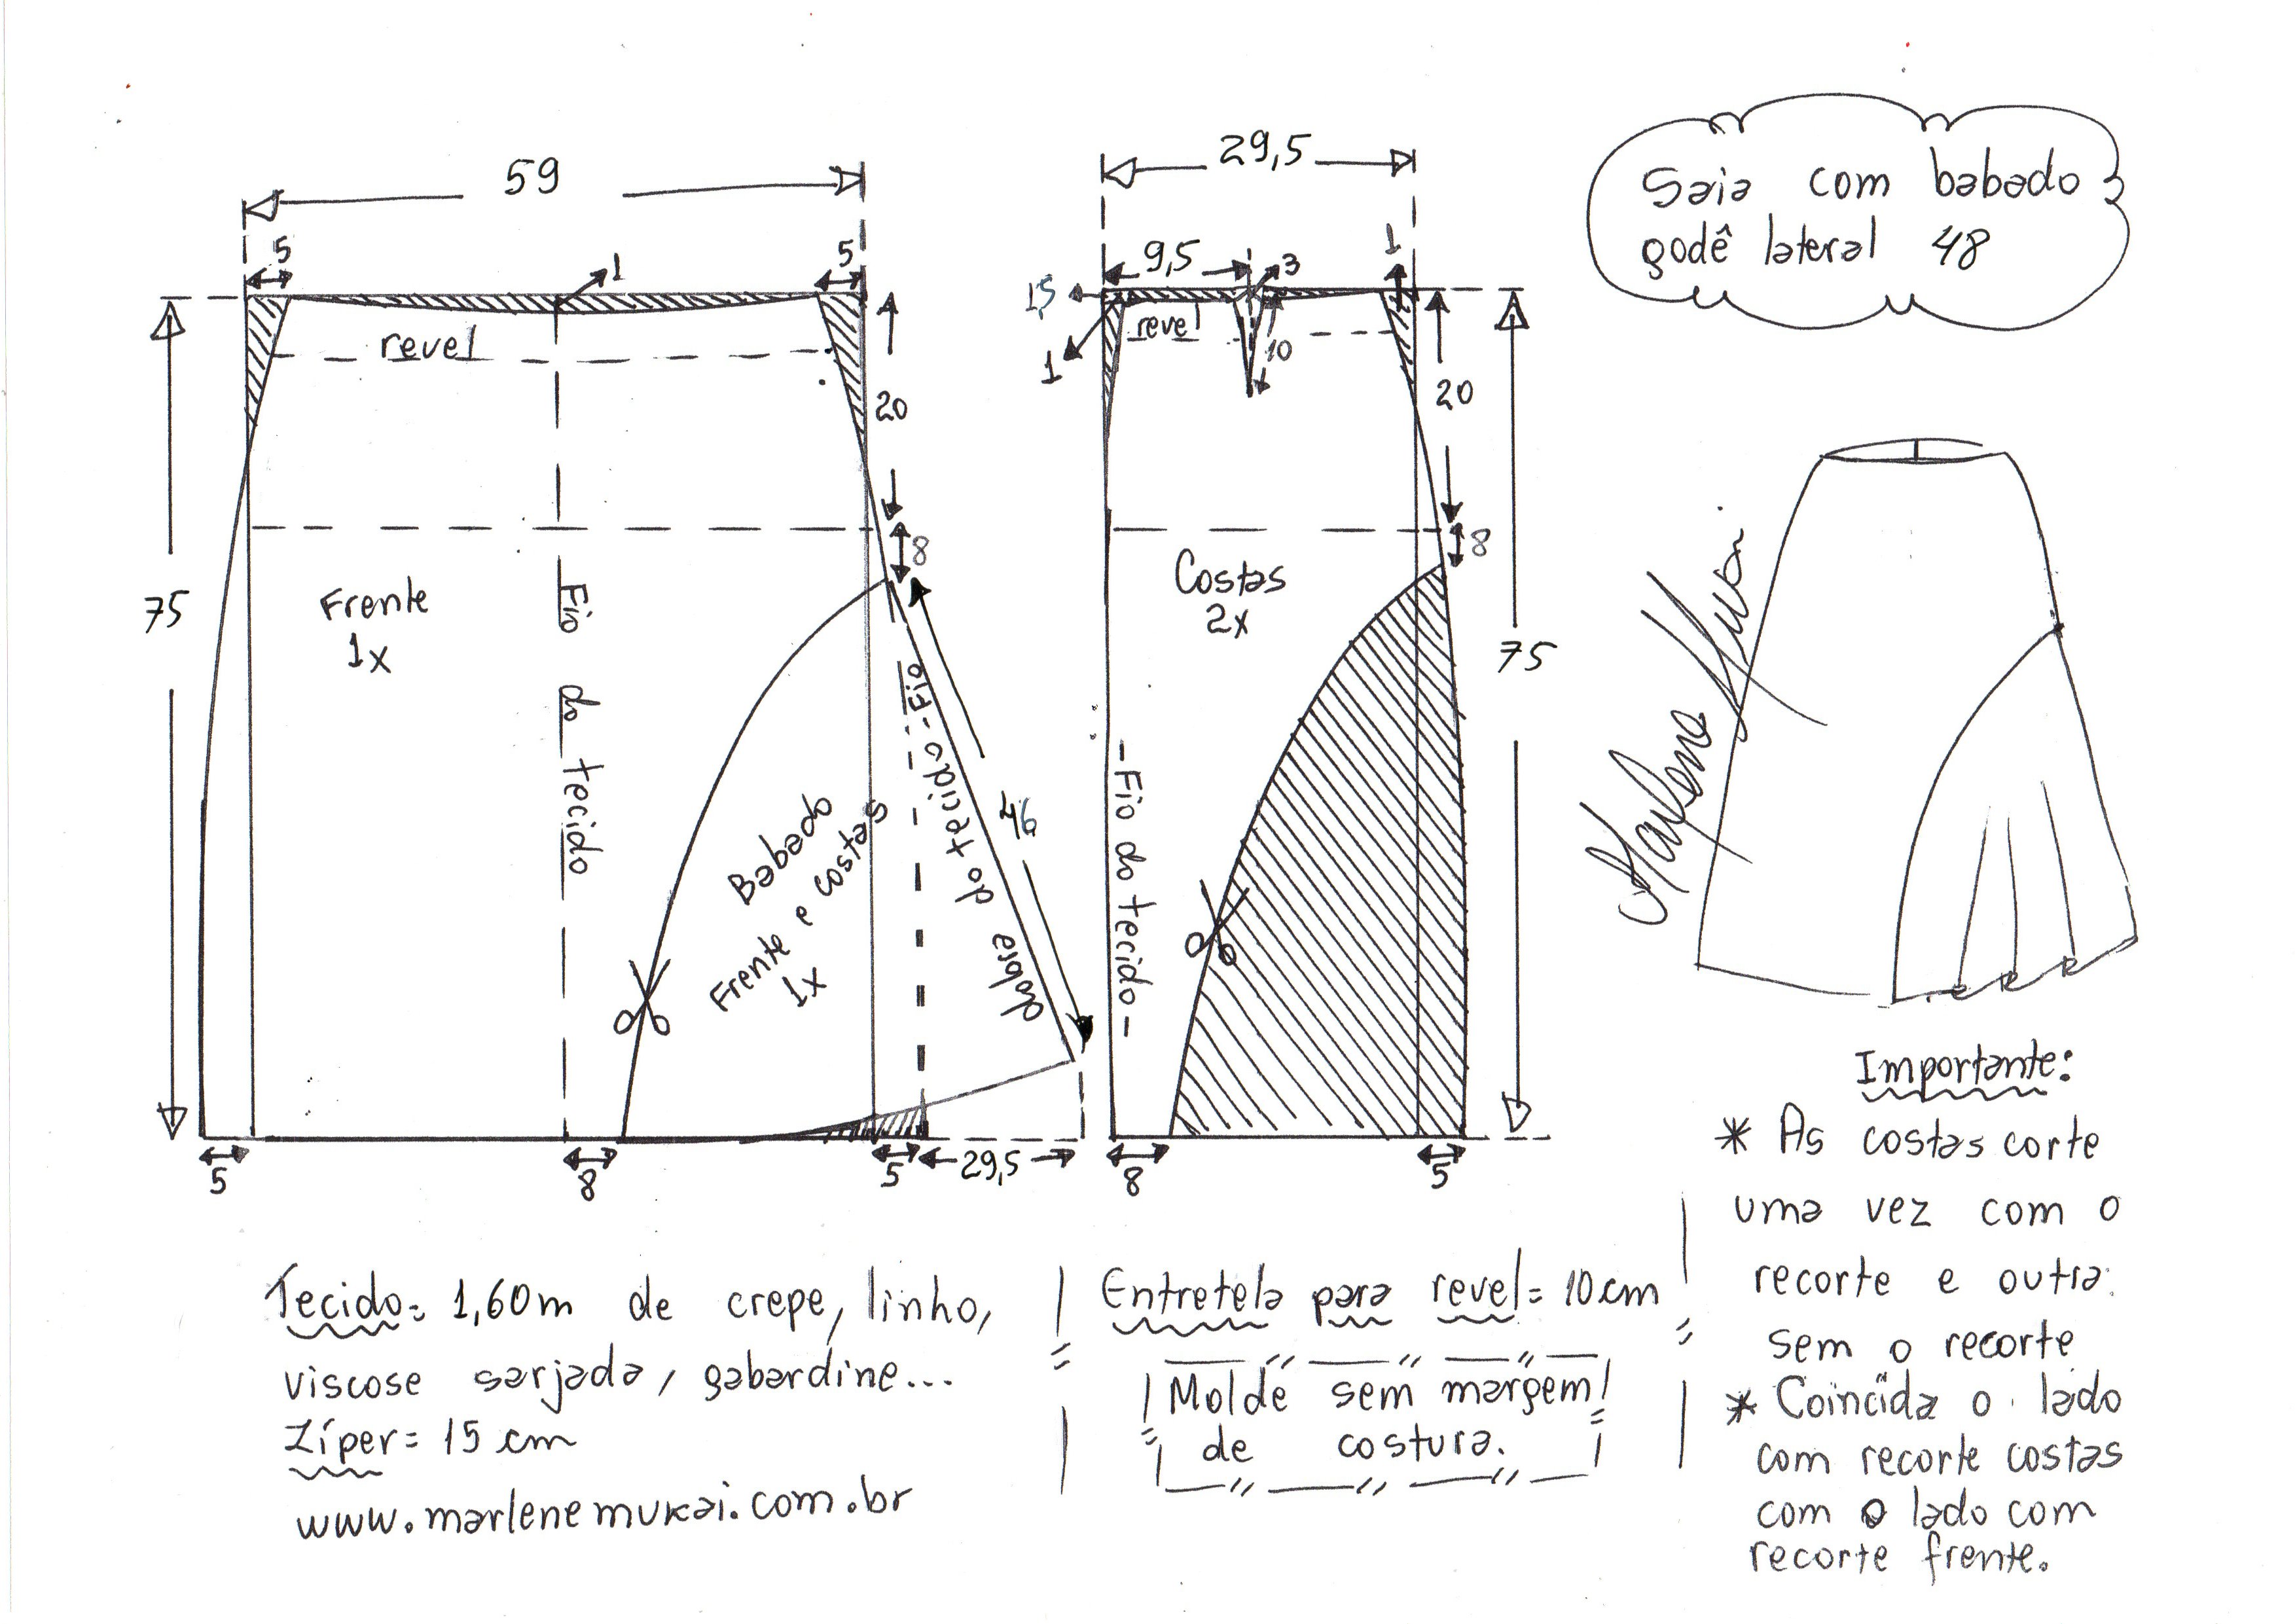 59
5
5
1
revel
20
8
75
Frente
1x
Fio do tecido
Babado
Frente e costas
1x
Fio do tecido
dobre
46
5
8
5
29,5
29,5
9,5
3
1
1,5
1
revel
10
20
8
Costas
2x
75
Fio do tecido
8
5
Saia com babado
godê lateral 48
Marlene Mukai
Importante:
* As costas corte
uma vez com o
recorte e outra
sem o recorte
* Coincida o lado
com recorte costas
com o lado com
recorte frente.
Tecido= 1,60m de crepe, linho,
viscose sarjada, gabardine...
Zíper= 15 cm
www.marlenemukai.com.br
Entretela para revel= 10 cm
Molde sem margem
de costura.